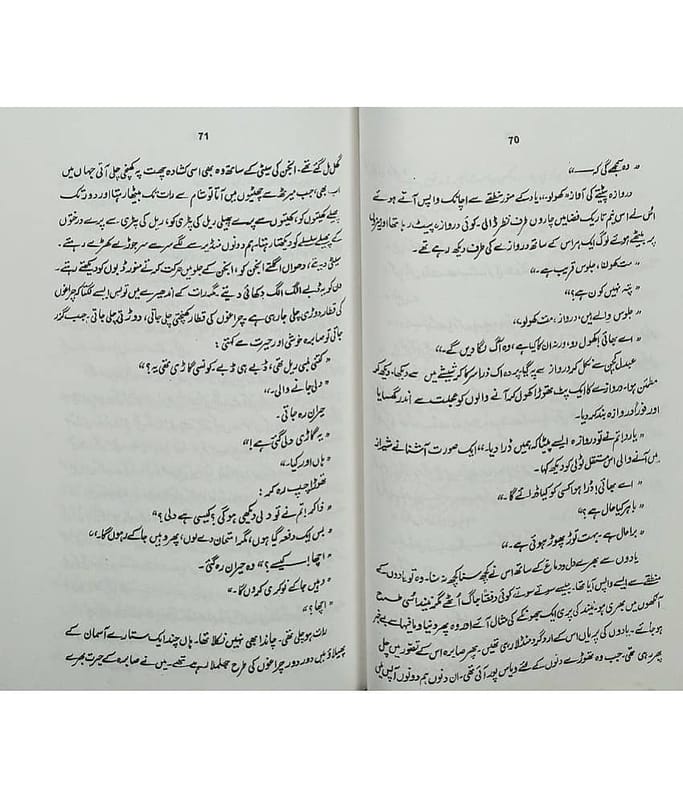 70
" وہ سمجھے گی کہ ـــــ "
دروازہ پیٹنے کی آواز "کھولو۔" یاد کے منور منطقے سے اچانک واپس آتے ہوئے
اس نے اس نیم تاریک فضا میں چاروں طرف نظر ڈالی۔ کوئی دروازہ پیٹ رہا تھا اور میزوں
پر بیٹھے ہوئے لوگ ایک ہراس کے ساتھ دروازے کی طرف دیکھ رہے تھے۔
" مت کھولنا، جلوس قریب ہے۔"
" پتہ نہیں کون ہے؟"
" جلوس والے ہیں، دروازہ مت کھولو۔"
" اے بھائی! کھول دو، ورنہ ان کا کیا ہے، وہ آگ لگا دیں گے۔"
عبدل کچن سے نکل کر دروازے پہ گیا، پردہ اک ذرا سرکا کر شیشے میں سے دیکھا، دیکھ کر
مطمئن ہوا۔ دروازے کا ایک پٹ تھوڑا کھول کر آنے والوں کو عجلت سے اندر گھسایا
اور فوراً دروازہ بند کر دیا۔
" یار! تم نے تو دروازہ ایسے پیٹا کہ ہمیں ڈرا دیا۔" ایک صورت آشنا نے شیراز
میں آنے والی اس مستقل ٹولی کو دیکھ کر کہا۔
" اے بھائی! ڈرا ہوا کسی کو کیا ڈرائے گا۔"
" باہر کیا حال ہے؟"
" برا حال ہے۔ بہت توڑ پھوڑ ہوئی ہے۔"
یادوں سے بھرے دل و دماغ کے ساتھ اس نے کچھ سنا کچھ نہ سنا۔ وہ تو یادوں کے
منطقے سے ایسے واپس آیا تھا۔ جیسے سوتے سوتے کوئی دفعتاً جاگ اٹھے مگر نیند اسی طرح
آنکھوں میں بھری ہو۔ نیند کی پری ایک جھونکے کی مثال آئے اور وہ پھر دنیا و مافیہا سے بے خبر
ہو جائے۔ یادوں کی پریاں اس کے ارد گرد منڈلا رہی تھیں۔ پھر صابرہ اس کے تصور میں چلی
پھر رہی تھی۔ جب وہ تھوڑے دنوں کے لئے ویاس پور آئی تھی۔ ان دنوں ہم دونوں آپس میں
71
گھل مل گئے تھے۔ انجن کی سیٹی کے ساتھ وہ بھی اسی کشادہ چھت پہ کھنچی چلی آتی جہاں میں
اب بھی، جب میرٹھ سے چھٹیوں میں آتا تو شام سے رات تک بیٹھا رہتا اور دور تک
پھیلے کھیتوں کو، کھیتوں سے پرے پھیلی ریل کی پٹری کو، ریل کی پٹری سے پرے درختوں
کے پھیلے سلسلے کو دیکھتا رہتا۔ ہم دونوں منڈیر سے لگے سرے سر جوڑے کھڑے رہتے۔
سیٹی دیتے، دھواں اگلتے انجن کو، انجن کے جلو میں حرکت کرتے منور ڈبوں کو دیکھتے رہتے۔
دن کو یہ ڈبے الگ الگ دکھائی دیتے مگر رات کے اندھیرے میں تو بس ایسے لگتا کہ چراغوں
کی قطار دوڑی چلی جا رہی ہے۔ چراغوں کی قطار کھنچتی چلی جاتی، دوڑتی چلی جاتی۔ جب گزر
جاتی تو صابرہ خوشی اور حیرت سے کہتی:
" کتنی لمبی ریل تھی، ڈبے ہی ڈبے۔ کونسی گاڑی تھی یہ؟"
" دلی جانے والی۔"
حیران رہ جاتی۔
" یہ گاڑی دلی گئی ہے!"
" ہاں اور کیا۔"
تھوڑا چپ رہ کر:
" ذاکر! تم نے تو دلی دیکھی ہوگی؟ کیسی ہے دلی؟"
" بس ایک دفعہ گیا ہوں، مگر امتحان دے لوں، پھر وہیں جا کے رہوں گا۔"
" اچھا! کیسے؟" وہ حیران رہ گئی۔
" وہیں جا کے نوکری کروں گا۔"
" اچھا؟"
رات ہو چلی تھی۔ چاند ابھی نہیں نکلا تھا۔ ہاں چند ایک ستارے آسمان کے
پھیلاؤ میں دور دور چراغوں کی طرح جھلملا رہے تھے۔ میں نے صابرہ کے حیرت بھرے